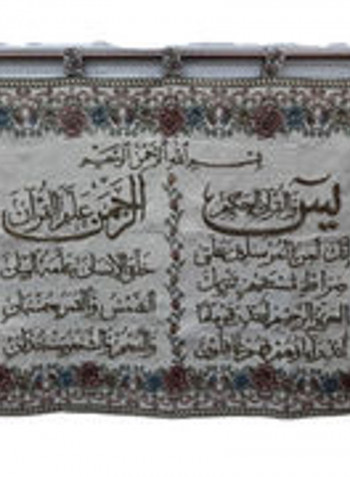 بسم الله الرحمن الرحيم
يس والقرآن الحكيم
إنك لمن المرسلين على
صراط مستقيم تنزيل
العزيز الرحيم لتنذر قوما ما
أنذر آباؤهم فهم غافلون
الرحمن علم القرآن
خلق الإنسان علمه البيان
الشمس والقمر بحسبان
والنجم والشجر يسجدان